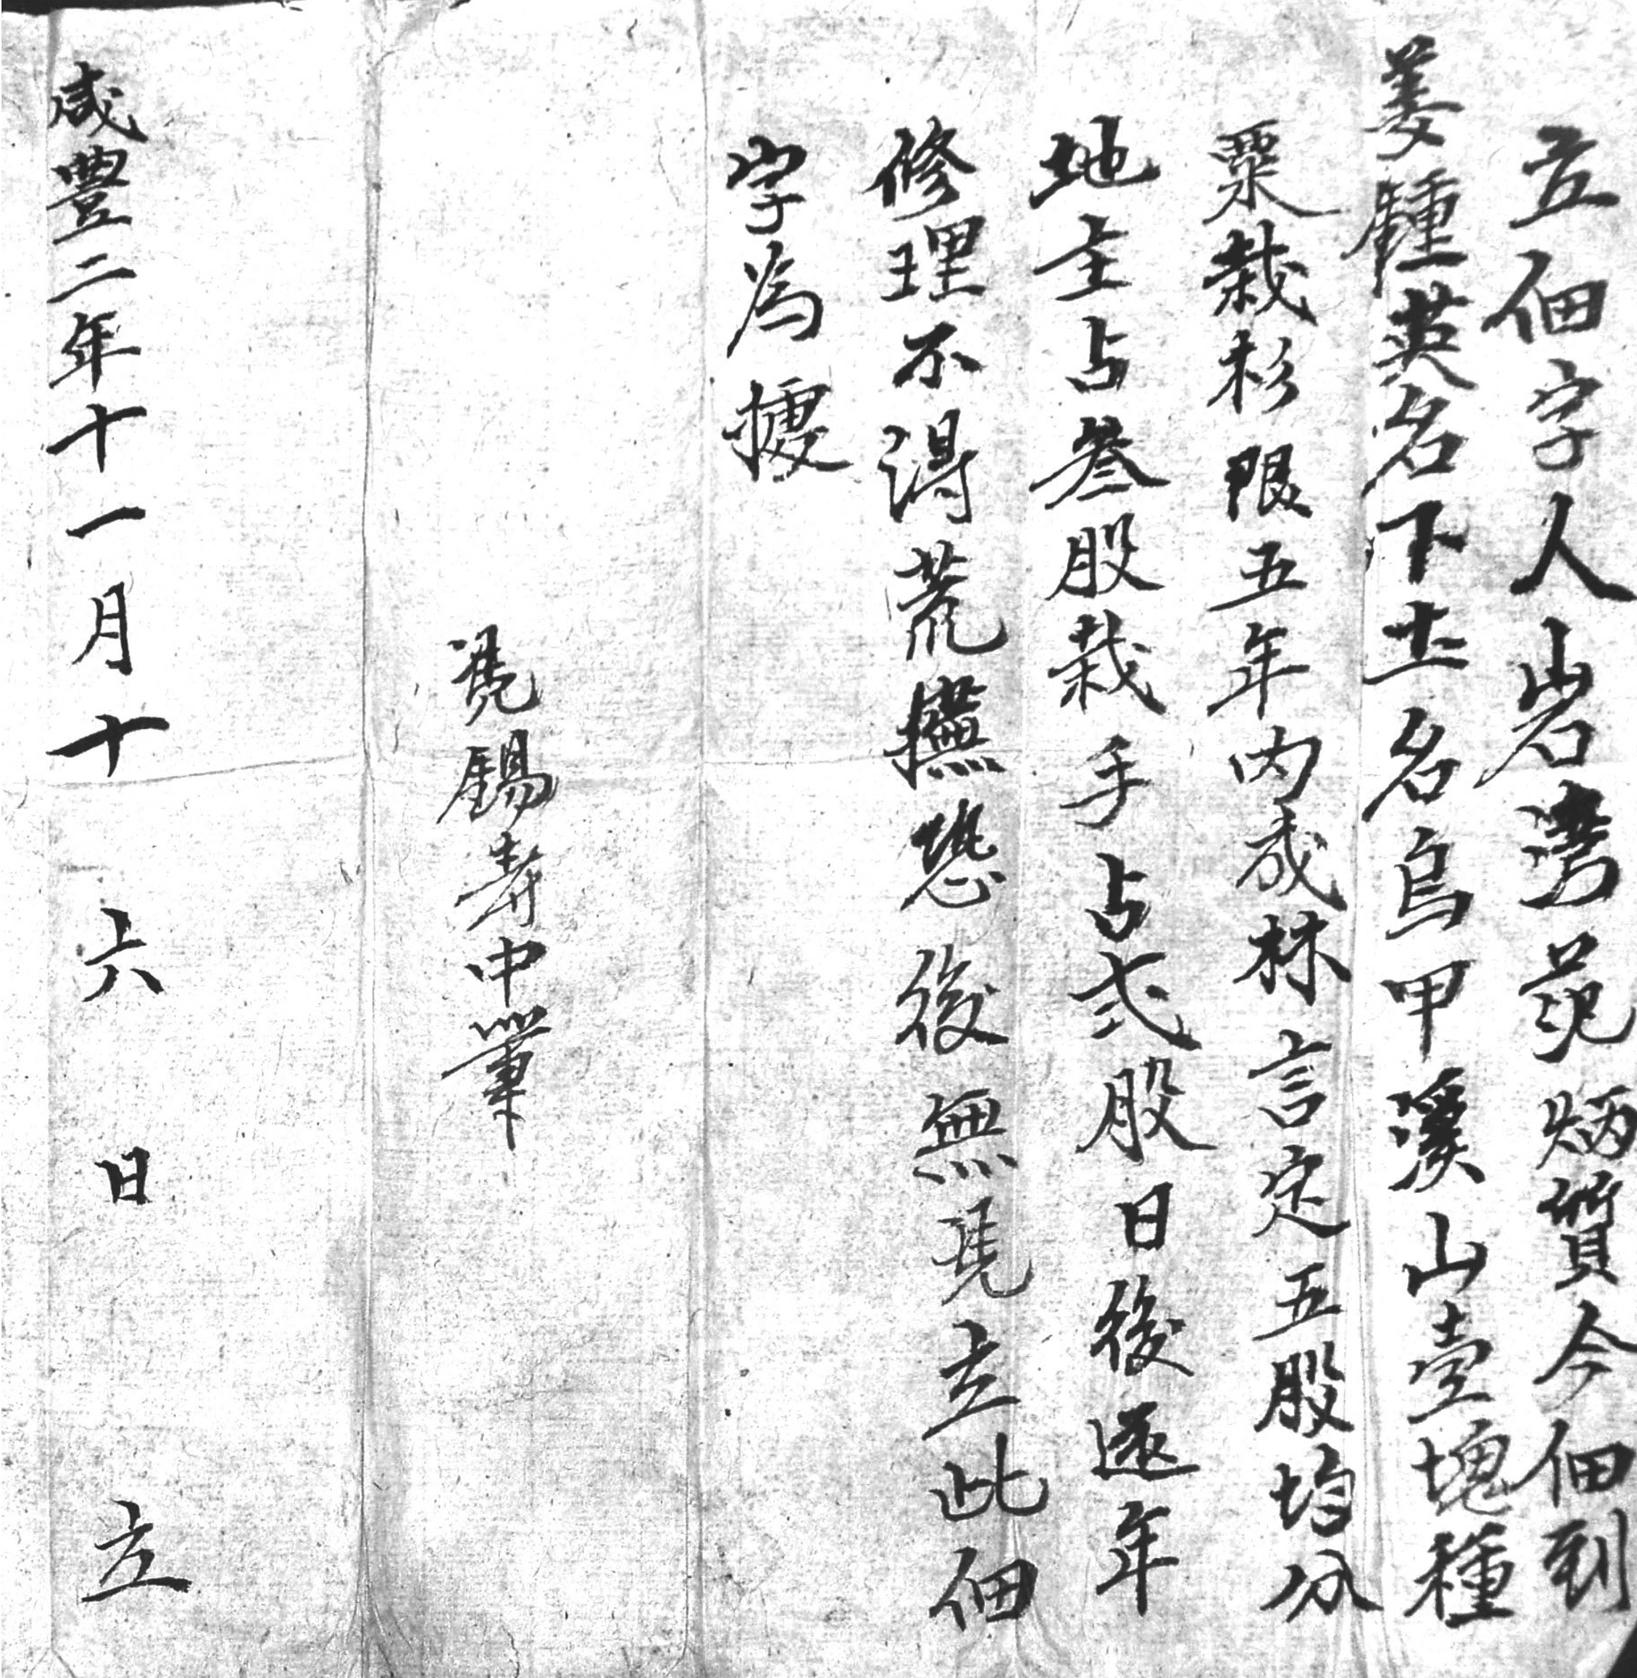 立佃字人岩湾范炳質今佃到
姜鍾英名下土名烏甲溪山壹塊種
粟栽杉限五年内成林言定五股均分
地主占叁股栽手占弍股日後逐年
修理不得荒撫恐後無憑立此佃
字為據
憑錫壽中筆
咸豐二年十一月十六日立